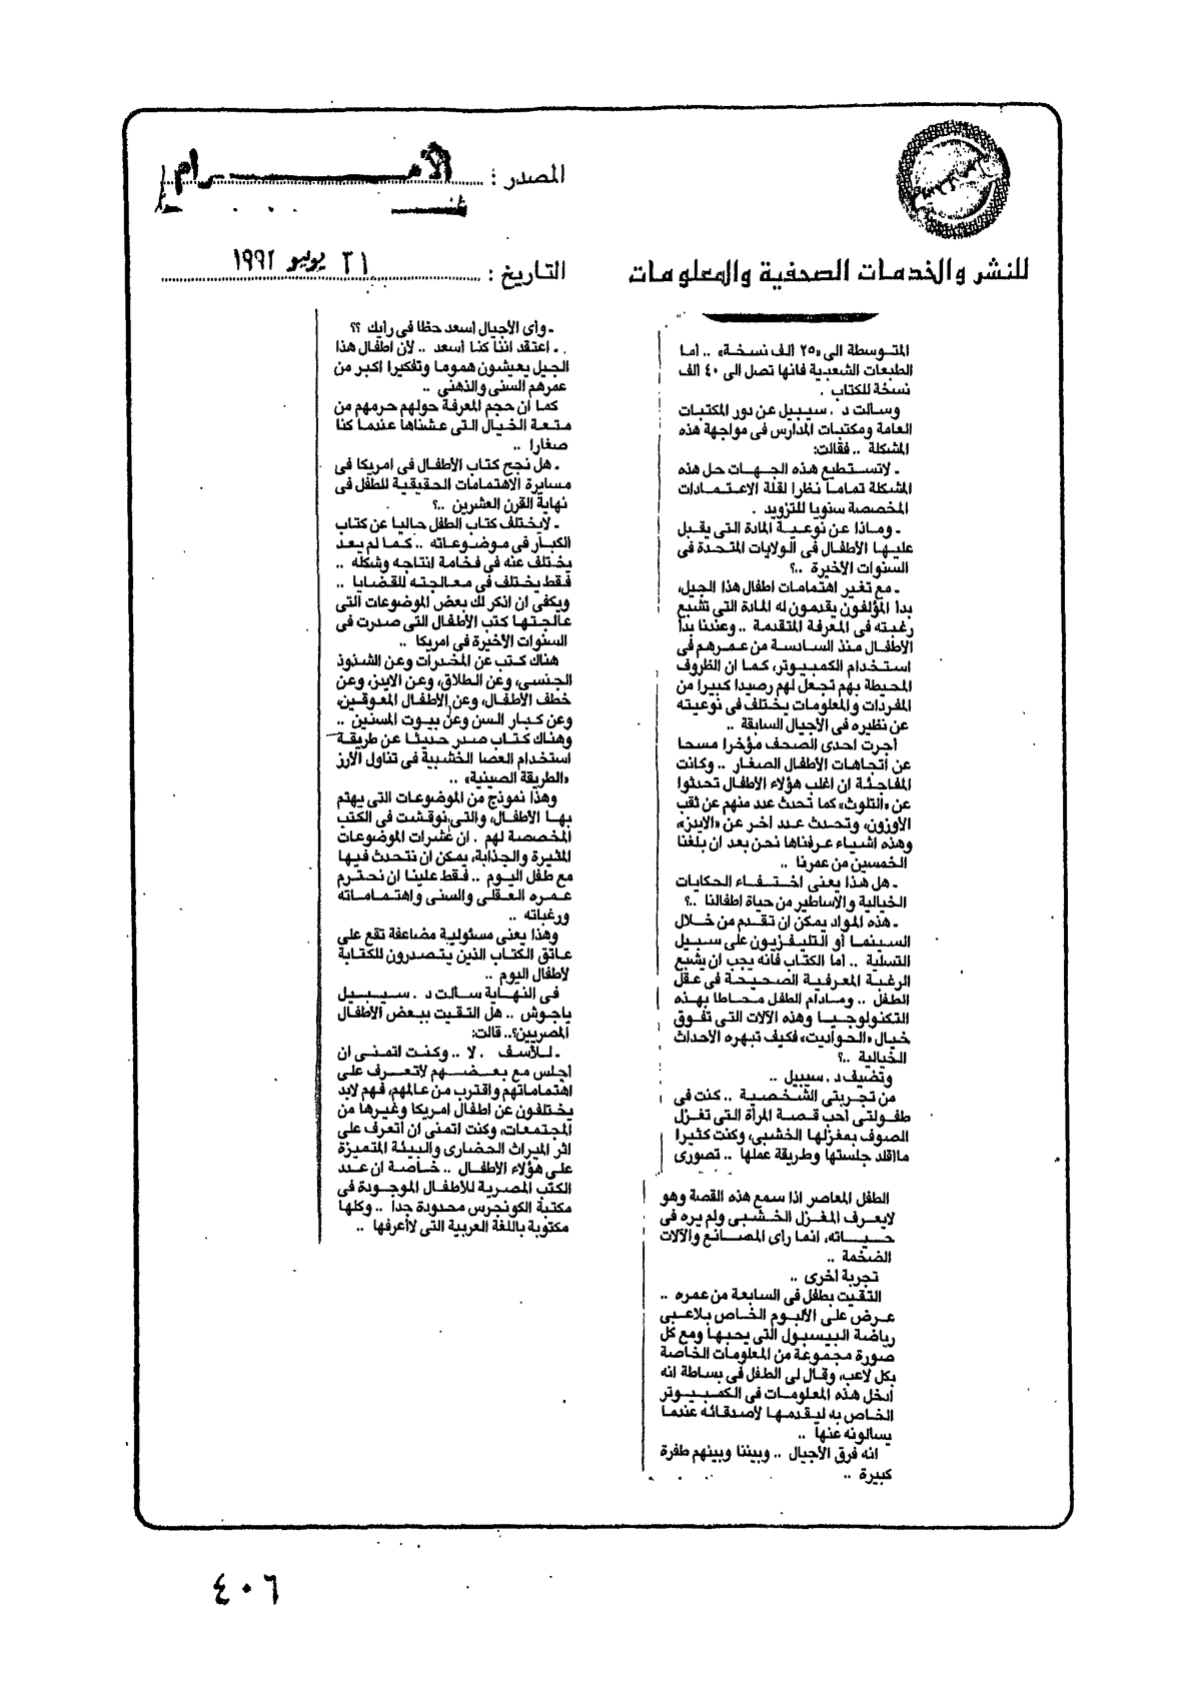 المصدر : الأهـــرام
للنشر والخدمات الصحفية والمعلومات
التاريخ : ٢١ يونيو ١٩٩٢
المتوسطة الى «٢٥ الف نسخة» .. أما
الطبعات الشعبية فانها تصل الى ٤٠ الف
نسخة للكتاب .
وسالت د . سيبيل عن دور المكتبات
العامة ومكتبات المدارس فى مواجهة هذه
المشكلة .. فقالت:
ـ لاتستطيع هذه الجهات حل هذه
المشكلة تماما نظرا لقلة الاعتمادات
المخصصة سنويا للتزويد .
ـ وماذا عن نوعية المادة التى يقبل
عليها الأطفال فى الولايات المتحدة فى
السنوات الأخيرة ..؟
ـ مع تغير اهتمامات اطفال هذا الجيل،
بدأ المؤلفون يقدمون له المادة التى تشبع
رغبته فى المعرفة المتقدمة .. وعندنا بدأ
الاطفال منذ السادسة من عمرهم فى
استخدام الكمبيوتر، كما ان الظروف
المحيطة بهم تجعل لهم رصيدا كبيرا من
المفردات والمعلومات يختلف فى نوعيته
عن نظيره فى الأجيال السابقة ..
أجرت احدى الصحف مؤخرا مسحا
عن اتجاهات الأطفال الصغار .. وكانت
المفاجئة ان اغلب هؤلاء الأطفال تحدثوا
عن «التلوث» كما تحدث عدد منهم عن ثقب
الأوزون، وتحدث عدد اخر عن «الايدز»
وهذه اشياء عرفناها نحن بعد ان بلغنا
الخمسين من عمرنا ..
ـ هل هذا يعنى اختفاء الحكايات
الخيالية والاساطير من حياة اطفالنا ..؟
ـ هذه المواد يمكن ان تقدم من خلال
السينما أو التليفزيون على سبيل
التسلية .. أما الكتاب فانه يجب ان يشبع
الرغبة المعرفية الصحيحة فى عقل
الطفل .. ومادام الطفل محاطا بهذه
التكنولوجيا وهذه الآلات التى تفوق
خيال «الحواديت» فكيف تبهره الأحداث
الخيالية ..؟
وتضيف د . سيبيل ..
من تجربتى الشخصية .. كنت فى
طفولتى أحب قصة المرأة التى تغزل
الصوف بمغزلها الخشبى، وكنت كثيرا
مااقلد جلستها وطريقة عملها .. تصورى
الطفل المعاصر اذا سمع هذه القصة وهو
لايعرف المغزل الخشبى ولم يره فى
حياته، انما راى المصانع والآلات
الضخمة ..
تجربة اخرى ..
التقيت بطفل فى السابعة من عمره ..
عرض على الألبوم الخاص بلاعبى
رياضة البيسبول التى يحبها ومع كل
صورة مجموعة من المعلومات الخاصة
بكل لاعب، وقال لى الطفل فى بساطة انه
أدخل هذه المعلومات فى الكمبيوتر
الخاص به ليقدمها لأصدقائه عندما
يسالونه عنها ..
انه فرق الأجيال .. وبيننا وبينهم طفرة
كبيرة ..
ـ وأى الأجيال أسعد حظا فى رايك ؟؟
. ـ اعتقد اننا كنا أسعد .. لأن اطفال هذا
الجيل يعيشون هموما وتفكيرا اكبر من
عمرهم السنى والذهنى ..
كما ان حجم المعرفة حولهم حرمهم من
متعة الخيال التى عشناها عندما كنا
صغارا ..
ـ هل نجح كتاب الأطفال فى امريكا فى
مسايرة الاهتمامات الحقيقية للطفل فى
نهاية القرن العشرين ..؟
ـ لايختلف كتاب الطفل حاليا عن كتاب
الكبار فى موضوعاته .. كما لم يعد
يختلف عنه فى فخامة انتاجه وشكله ..
فقط يختلف فى معالجته للقضايا ..
ويكفى ان اذكر لك بعض الموضوعات التى
عالجتها كتب الأطفال التى صدرت فى
السنوات الأخيرة فى امريكا ..
هناك كتب عن المخدرات وعن الشذوذ
الجنسى، وعن الطلاق، وعن الايدز، وعن
خطف الأطفال، وعن الأطفال المعوقين،
وعن كبار السن وعن بيوت المسنين ..
وهناك كتاب صدر حديثا عن طريقة
استخدام العصا الخشبية فى تناول الأرز
«الطريقة الصينية» ..
وهذا نموذج من الموضوعات التى يهتم
بها الأطفال، والتى نوقشت فى الكتب
المخصصة لهم . ان عشرات الموضوعات
المثيرة والجذابة، يمكن ان نتحدث فيها
مع طفل اليوم .. فقط علينا ان نحترم
عمره العقلى والسنى واهتماماته
ورغباته ..
وهذا يعنى مسئولية مضاعفة تقع على
عاتق الكتاب الذين يتصدرون للكتابة
لأطفال اليوم ..
فى النهاية سألت د . سيبيل
ياجوش .. هل التقيت ببعض الأطفال
المصريين؟.. قالت:
ـ للأسف . لا .. وكنت اتمنى ان
أجلس مع بعضهم لاتعرف على
اهتماماتهم واقترب من عالمهم، فهم لابد
يختلفون عن اطفال امريكا وغيرها من
المجتمعات، وكنت اتمنى ان أتعرف على
اثر الميراث الحضارى والبيئة المتميزة
على هؤلاء الأطفال .. خاصة ان عدد
الكتب المصرية للأطفال الموجودة فى
مكتبة الكونجرس محدودة جدا .. وكلها
مكتوبة باللغة العربية التى لاأعرفها ..
٤٠٦